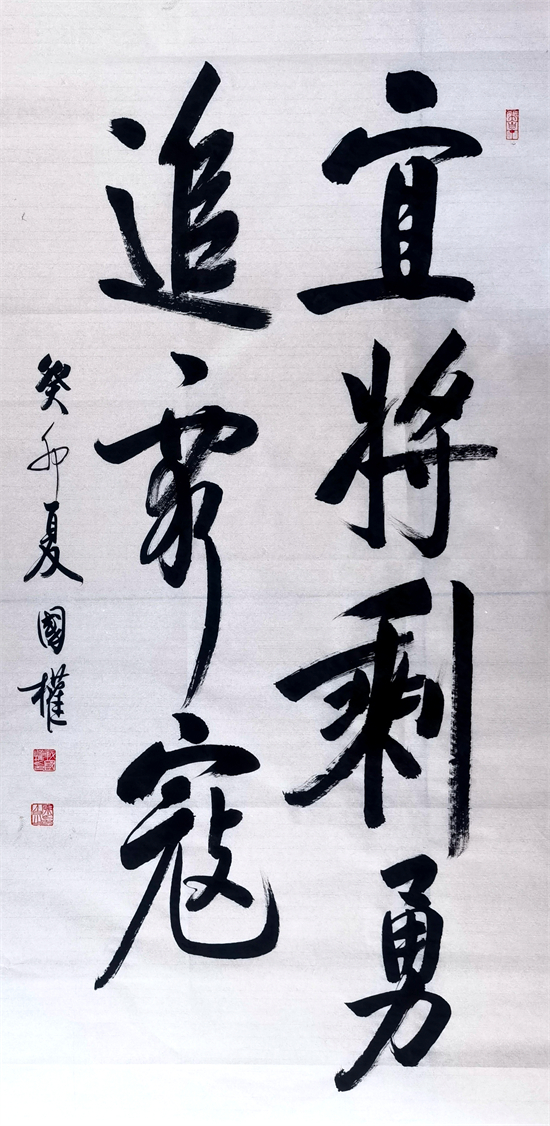 宜将剩勇
追穷寇
癸卯夏國權